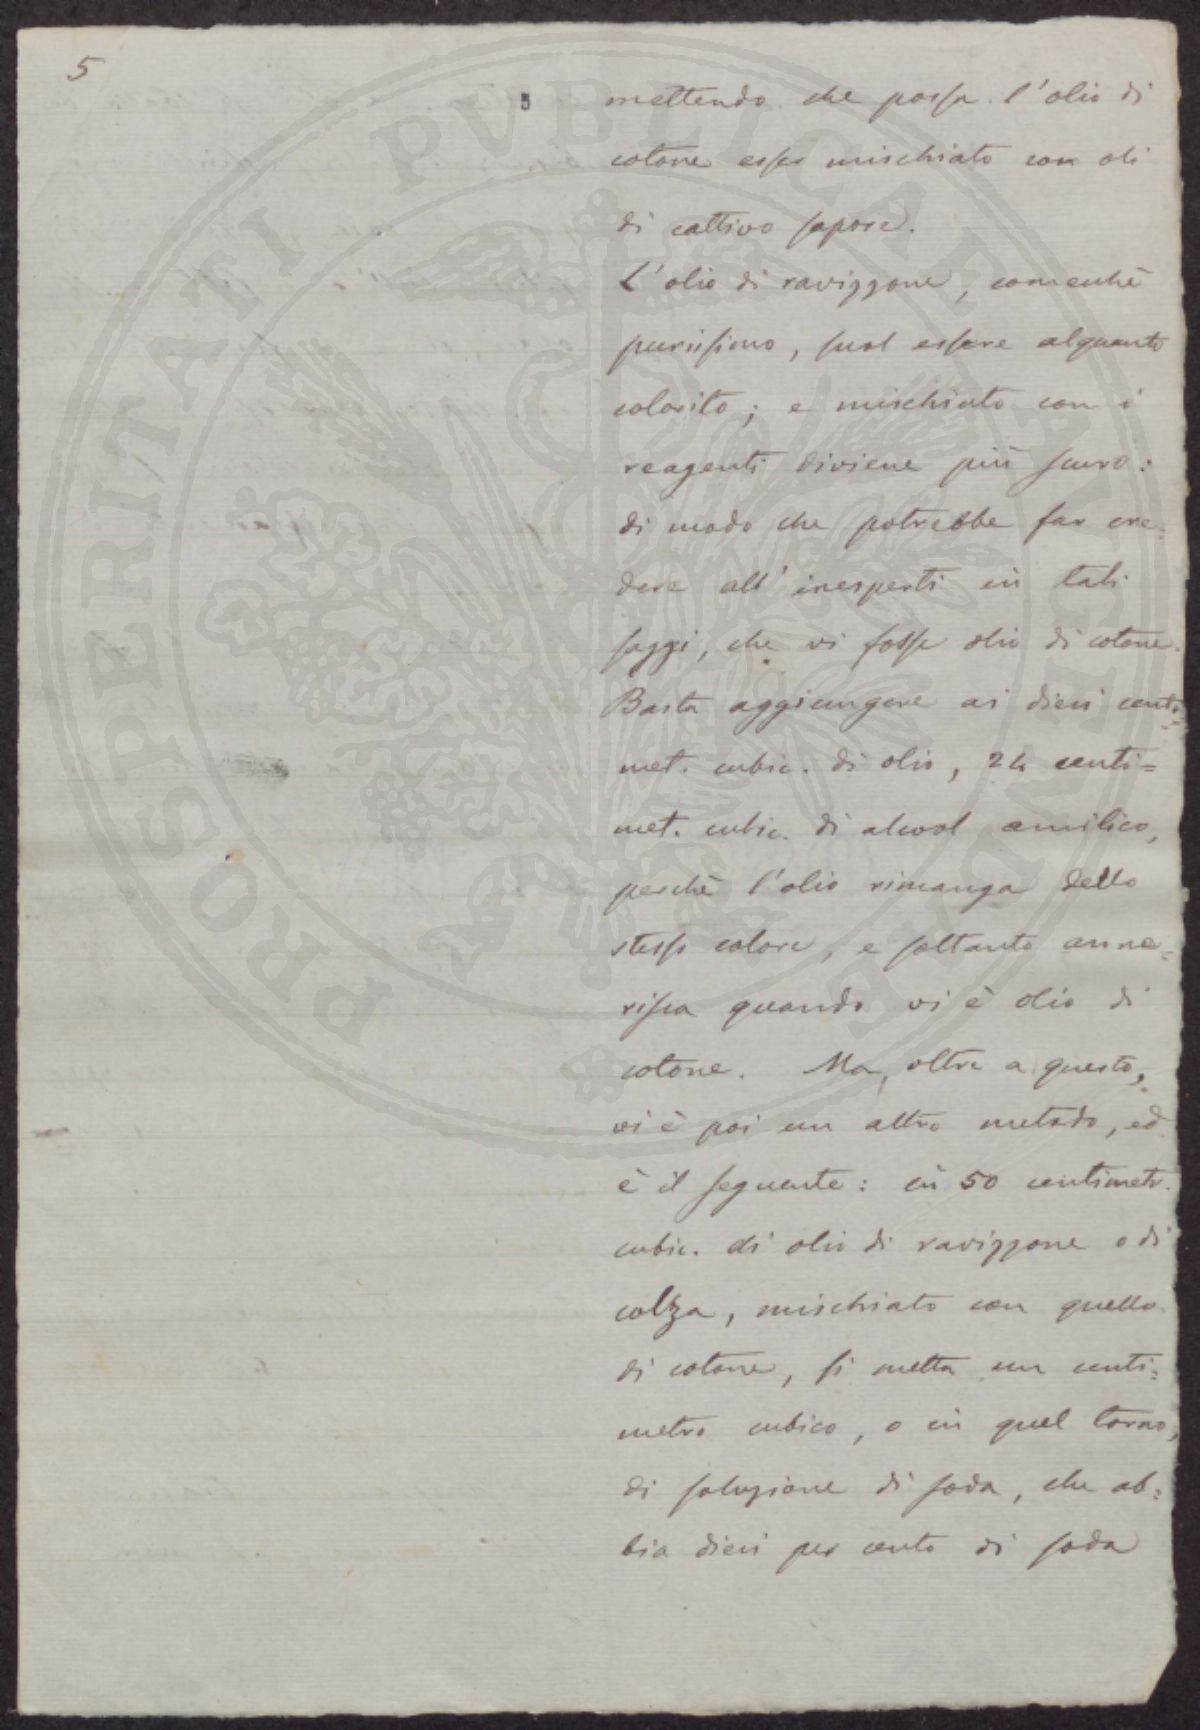 5
5
mettendo che possa l'olio di
cotone esser mischiato con oli
di cattivo sapore.
L'olio di ravizzone, comechè
purissimo, suol essere alquanto
colorito; e mischiato con i
reagenti diviene più scuro:
di modo che potrebbe far cre=
dere all' inesperti in tali
saggi, che vi fosse olio di cotone.
Basta aggiungere ai dieci centi=
met. cubic. di olio, 24 centi=
met. cubic. di alcool amilico,
perchè l'olio rimanga dello
stesso colore, e soltanto anne=
risca quando vi è olio di
cotone. Ma, oltre a questo,
vi è poi un altro metodo, ed
è il seguente: in 50 centimetr.
cubic. di olio di ravizzone o di
colza, mischiato con quello
di cotone, si metta un centi=
metro cubico, o in quel torno,
di soluzione di soda, che ab=
bia dieci per cento di soda
PROSPERITATI PVBLICAE AVGENDAE